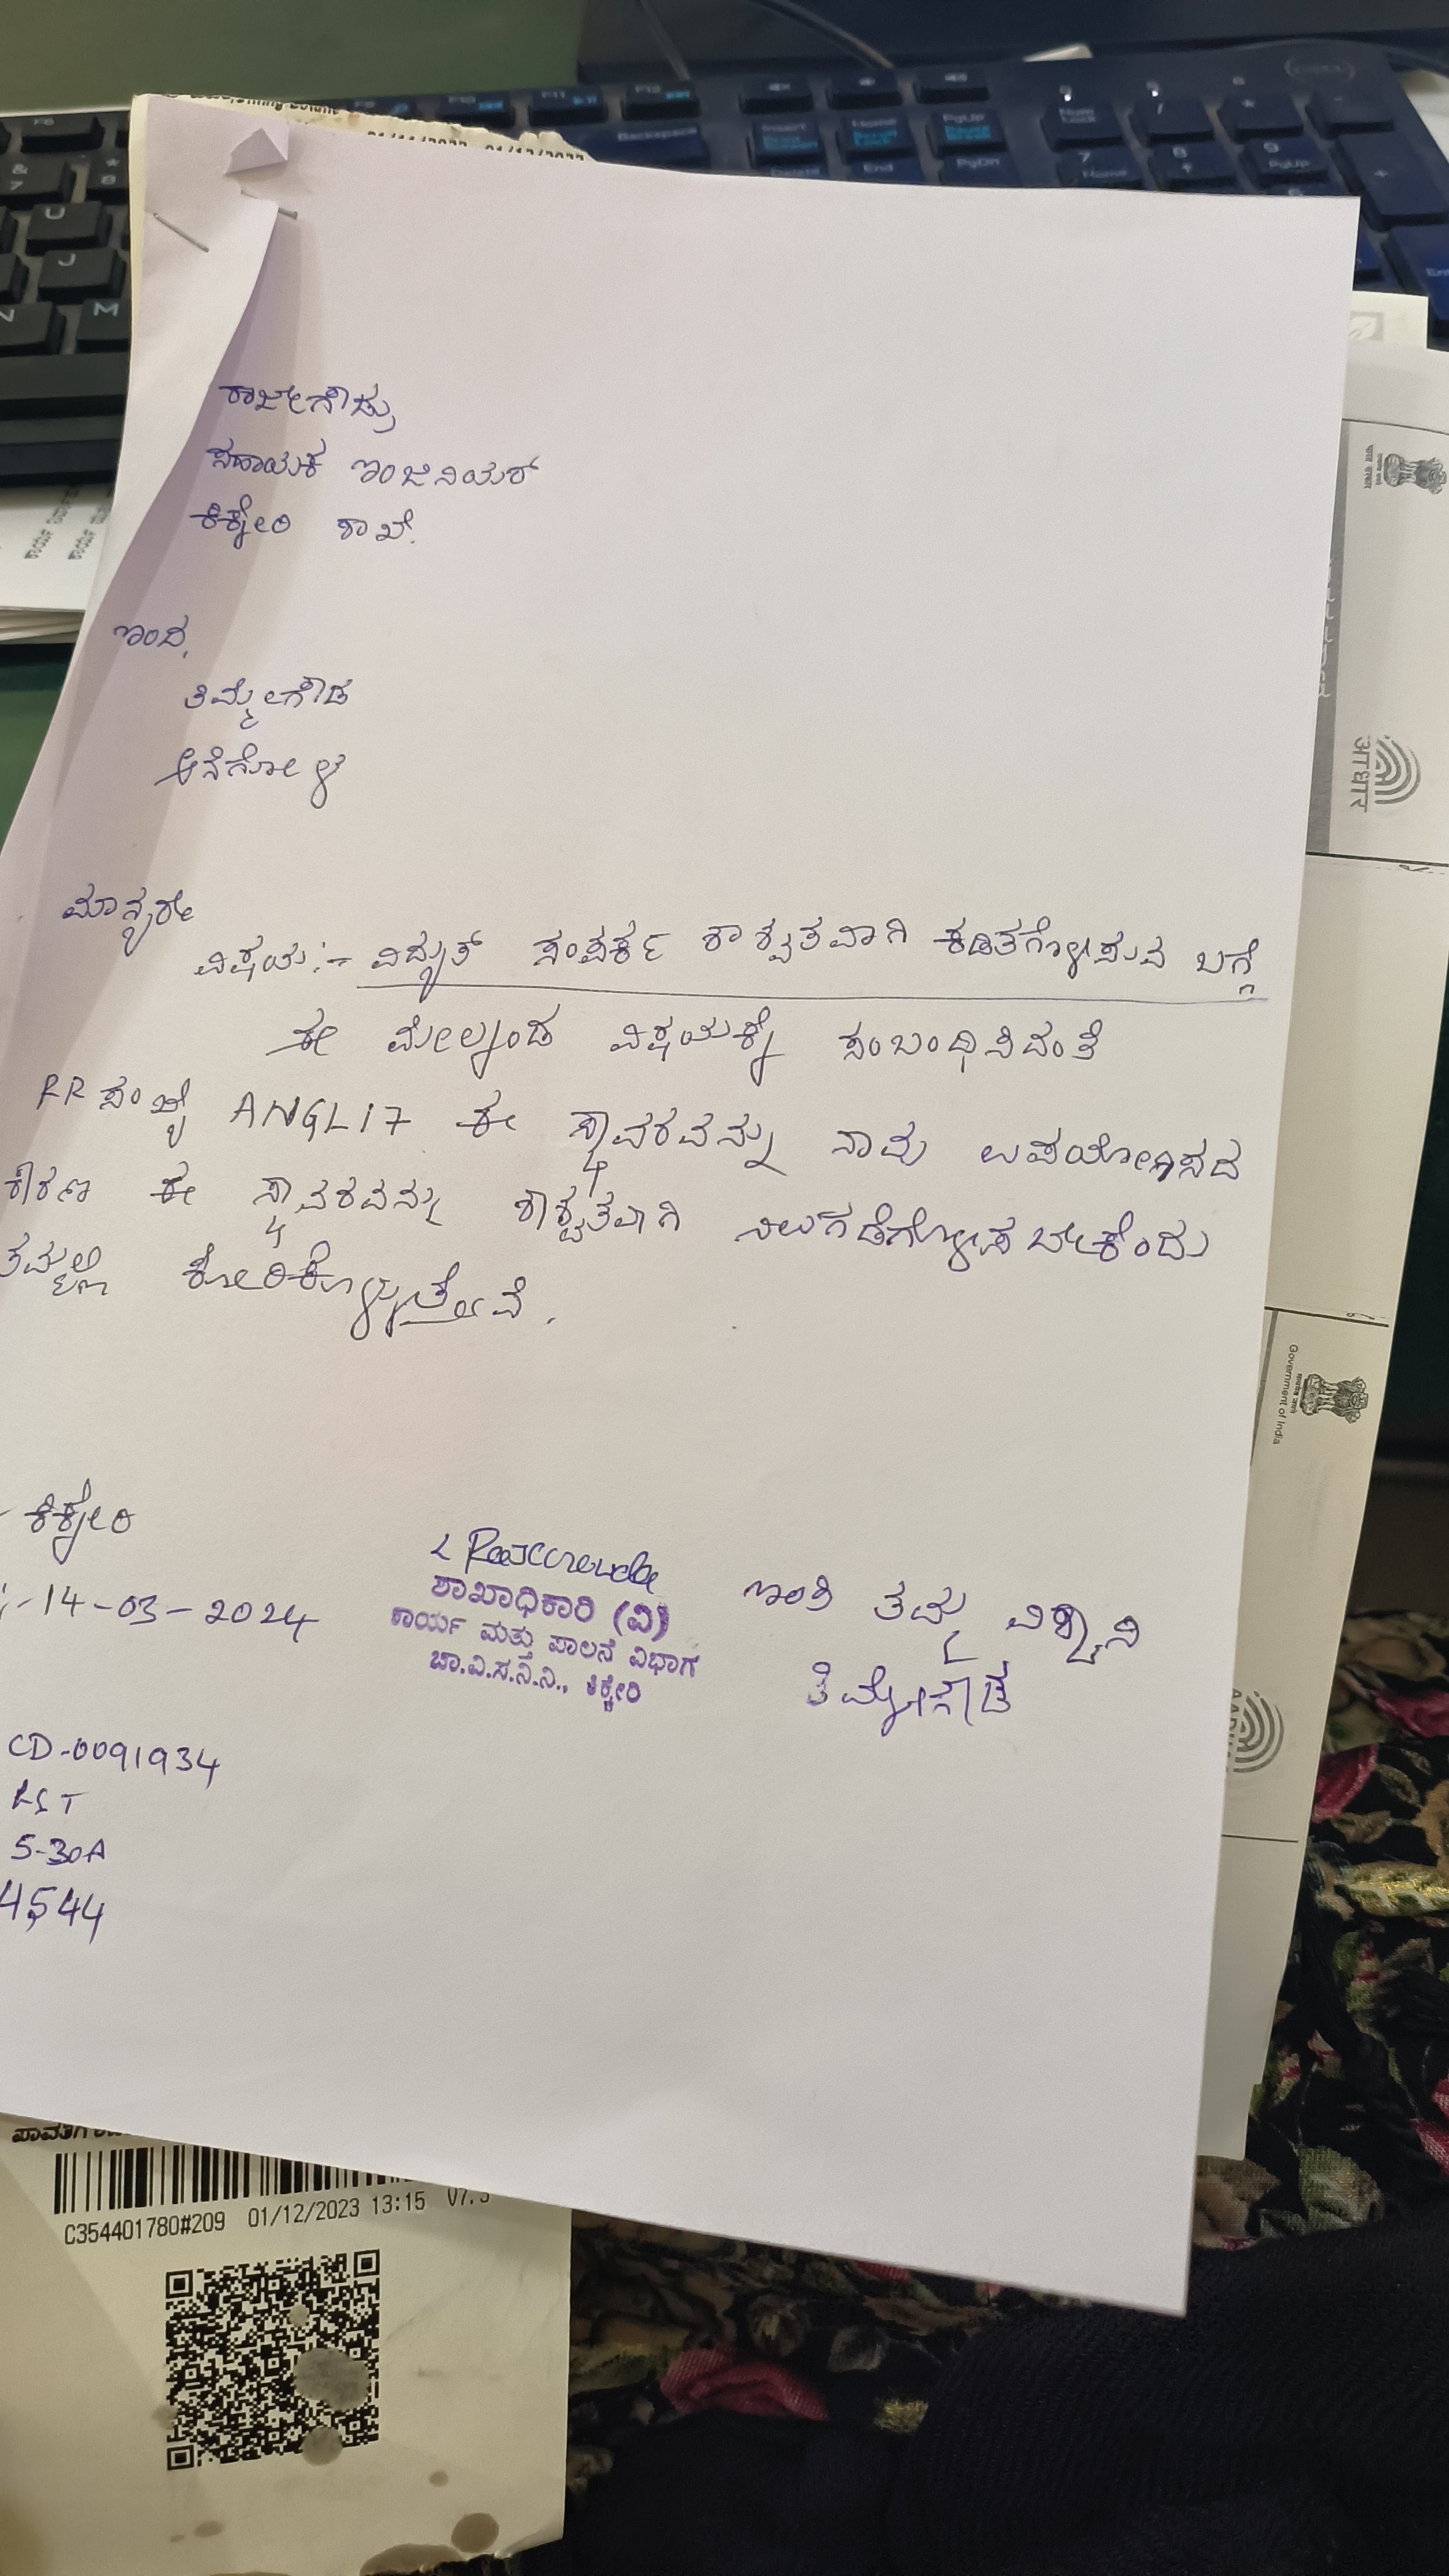 ರಾಜೇಗೌಡ್ರು
ಸಹಾಯಕ ಇಂಜಿನಿಯರ್
ಕಿಕ್ಕೇರಿ ಶಾಖೆ.
ಇಂದ,
ತಿಮ್ಮೇಗೌಡ
ಆನೆಗೋಳ
ಮಾನ್ಯರೇ
ವಿಷಯ:- ವಿದ್ಯುತ್ ಸಂಪರ್ಕ ಶಾಶ್ವತವಾಗಿ ಕಡಿತಗೊಳಿಸುವ ಬಗ್ಗೆ
ಈ ಮೇಲ್ಕಂಡ ವಿಷಯಕ್ಕೆ ಸಂಬಂಧಿಸಿದಂತೆ
RR ಸಂಖ್ಯೆ ANGL17 ಈ ಸ್ಥಾವರವನ್ನು ನಾವು ಉಪಯೋಗಿಸದ
ಕಾರಣ ಈ ಸ್ಥಾವರವನ್ನು ಶಾಶ್ವತವಾಗಿ ನಿಲುಗಡೆಗೊಳಿಸಬೇಕೆಂದು
ತಮ್ಮಲ್ಲಿ ಕೋರಿಕೊಳ್ಳುತ್ತೇವೆ.
ಕಿಕ್ಕೇರಿ
:-14-03-2024
ಶಾಖಾಧಿಕಾರಿ (ವಿ)
ಕಾರ್ಯ ಮತ್ತು ಪಾಲನೆ ವಿಭಾಗ
ಚಾ.ವಿ.ಸ.ನಿ.ನಿ., ಕಿಕ್ಕೇರಿ
ಇಂತಿ ತಮ್ಮ ವಿಶ್ವಾಸಿ
ತಿಮ್ಮೇಗೌಡ
CD-0091934
L&T
5-30A
4544
C354401780#209 01/12/2023 13:15 V7.5
आधार
Government of India